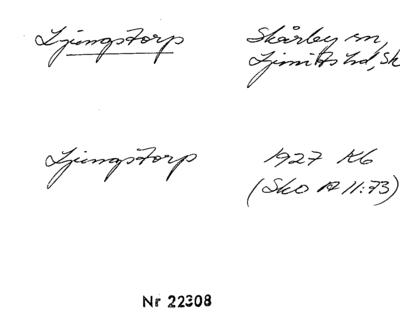 Ljungstorp Skårby sn,
Ljunits hd, Sk
Ljungstorp 1927 Kb
(Sko A 11:73)
Nr 22308